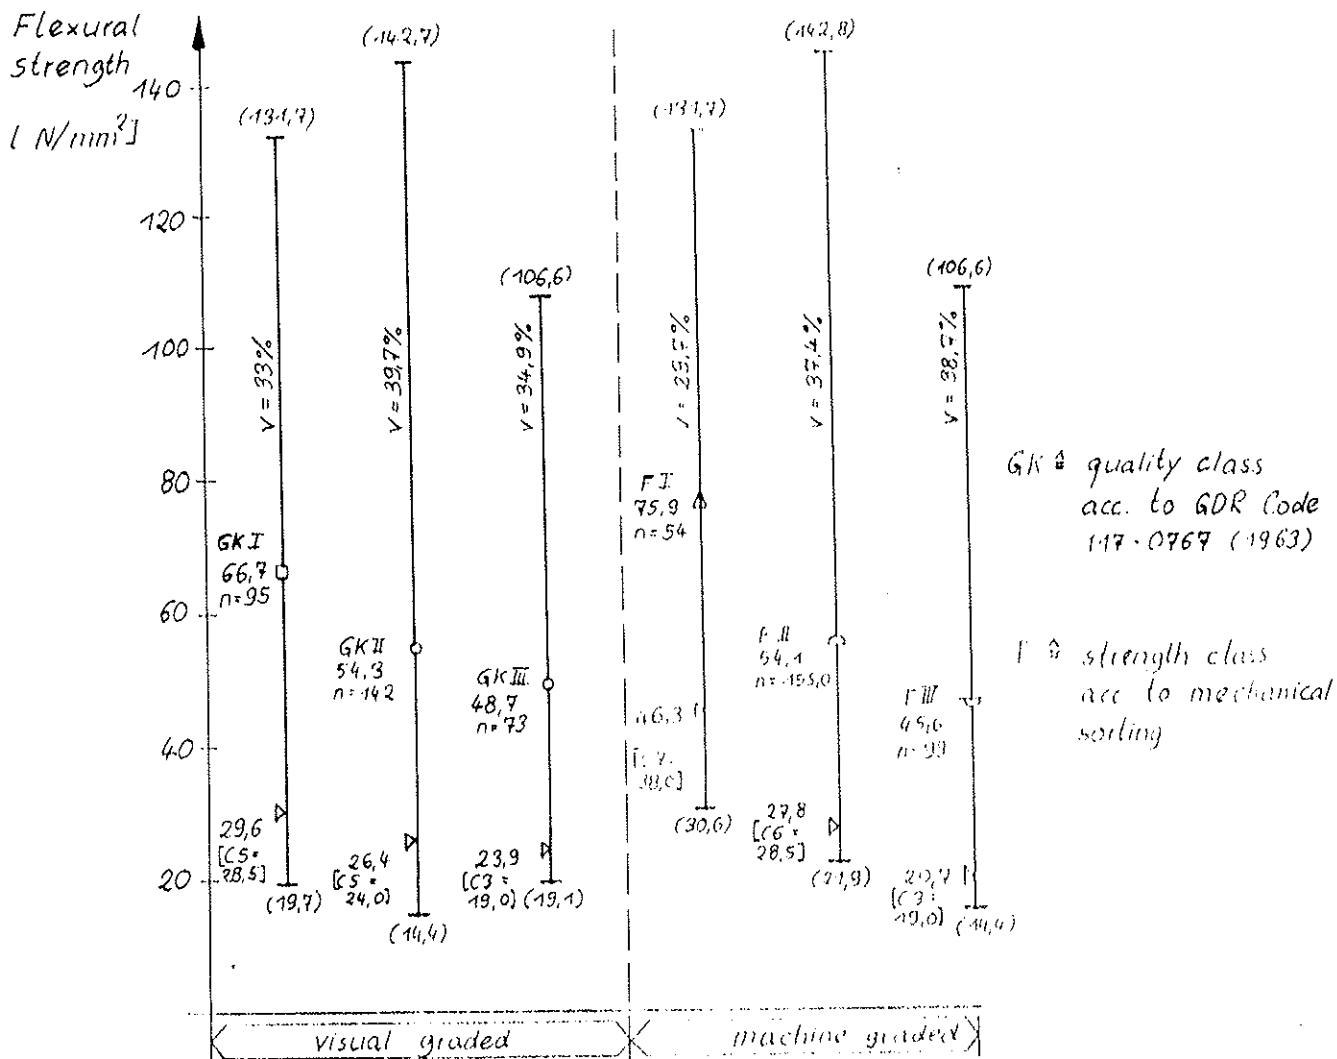 Flexural
strength
[N/mm²]
140
120
100
80
60
40
20
(131,7)
v = 33%
GK I
66,7
n=95
29,6
[C5=
28,5]
(19,7)
(142,7)
v = 39,7%
GK II
54,3
n=142
26,4
[C5=
24,0]
(14,4)
(106,6)
v = 34,9%
GK III
48,7
n=73
23,9
[C3=
19,0]
(19,1)
(131,7)
F I
75,9
n=54
46,3
38,0]
(30,6)
(142,8)
v = 37,4%
F II
54,1
27,8
[C6=
28,5]
(21,9)
(106,6)
v = 38,7%
F III
45,6
n=99
20,7
[C3=
19,0]
(14,4)
GK ≙ quality class
acc. to GDR Code
117-0767 (1963)
F ≙ strength class
acc to mechanical
sorting
visual graded
machine graded